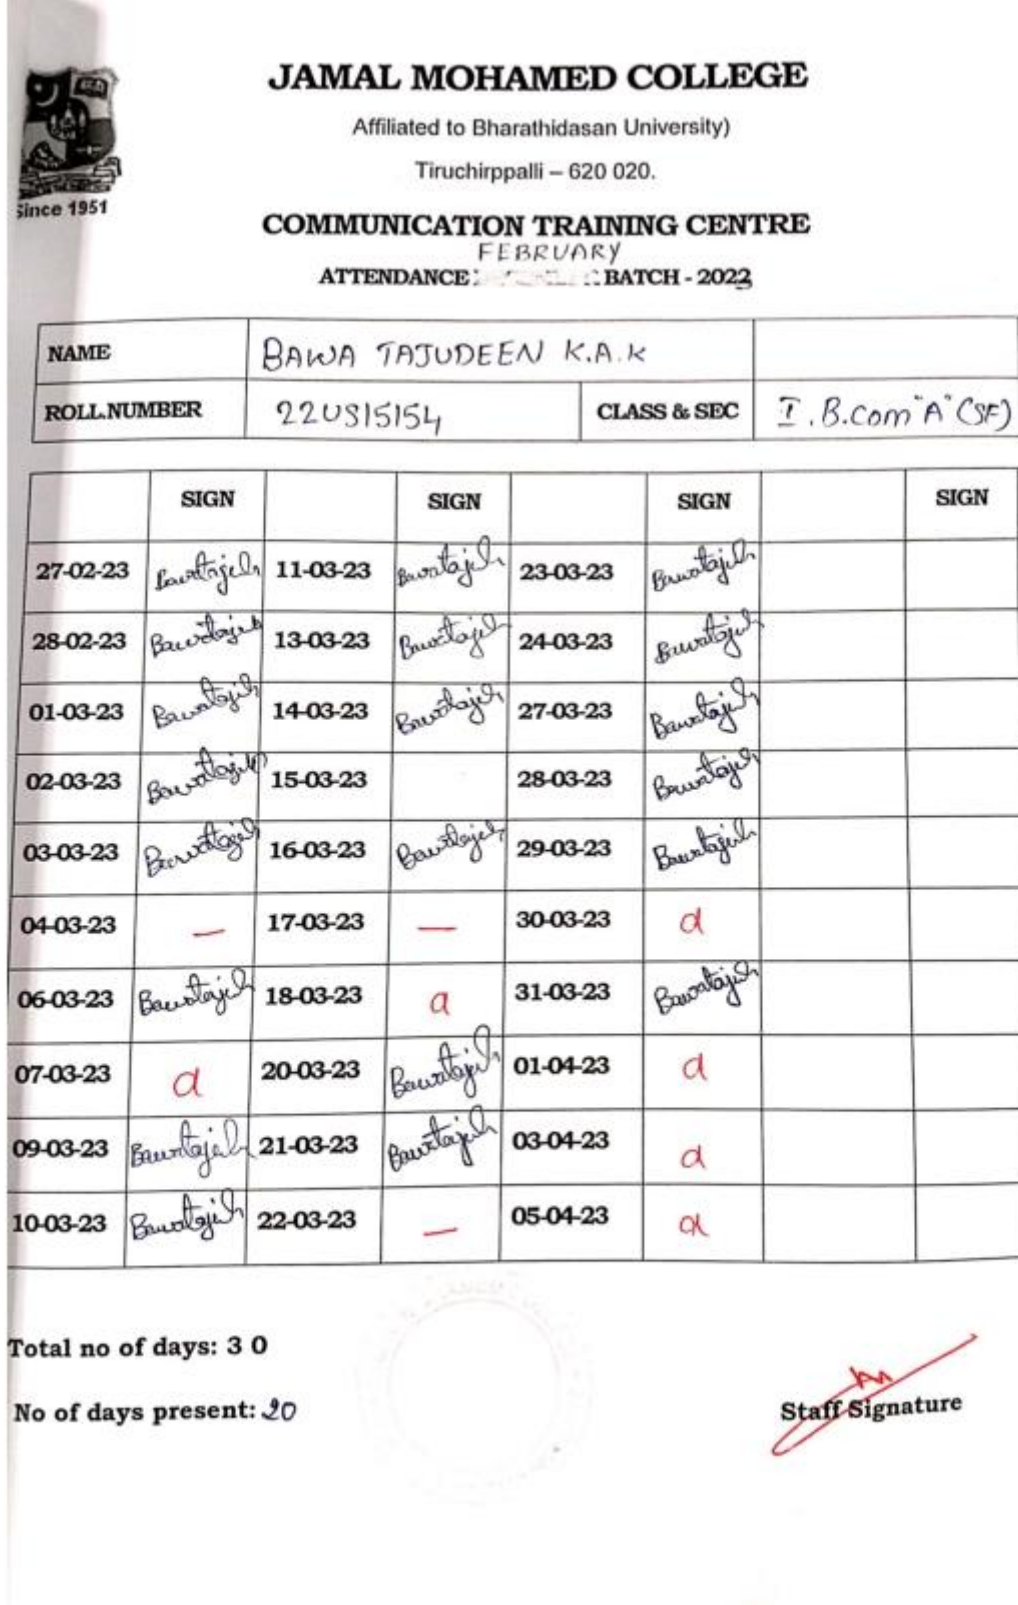 Since 1951
JAMAL MOHAMED COLLEGE
Affiliated to Bharathidasan University)
Tiruchirppalli – 620 020.
COMMUNICATION TRAINING CENTRE
FEBRUARY
ATTENDANCE BATCH - 2023
NAME BAWA TAJUDEEN K.A.K
ROLL.NUMBER 22US15154 CLASS & SEC I. B.Com "A" (SF)
SIGN SIGN SIGN SIGN
27-02-23 Bawatajudn 11-03-23 Bawatajudn 23-03-23 Bawatajudn
28-02-23 Bawatajudn 13-03-23 Bawatajudn 24-03-23 Bawatajudn
01-03-23 Bawatajudn 14-03-23 Bawatajudn 27-03-23 Bawatajudn
02-03-23 Bawatajudn 15-03-23 28-03-23 Bawatajudn
03-03-23 Bawatajudn 16-03-23 Bawatajudn 29-03-23 Bawatajudn
04-03-23 — 17-03-23 — 30-03-23 a
06-03-23 Bawatajudn 18-03-23 a 31-03-23 Bawatajudn
07-03-23 a 20-03-23 Bawatajudn 01-04-23 a
09-03-23 Bawatajudn 21-03-23 Bawatajudn 03-04-23 a
10-03-23 Bawatajudn 22-03-23 — 05-04-23 a
Total no of days: 3 0
No of days present: 20
Staff Signature